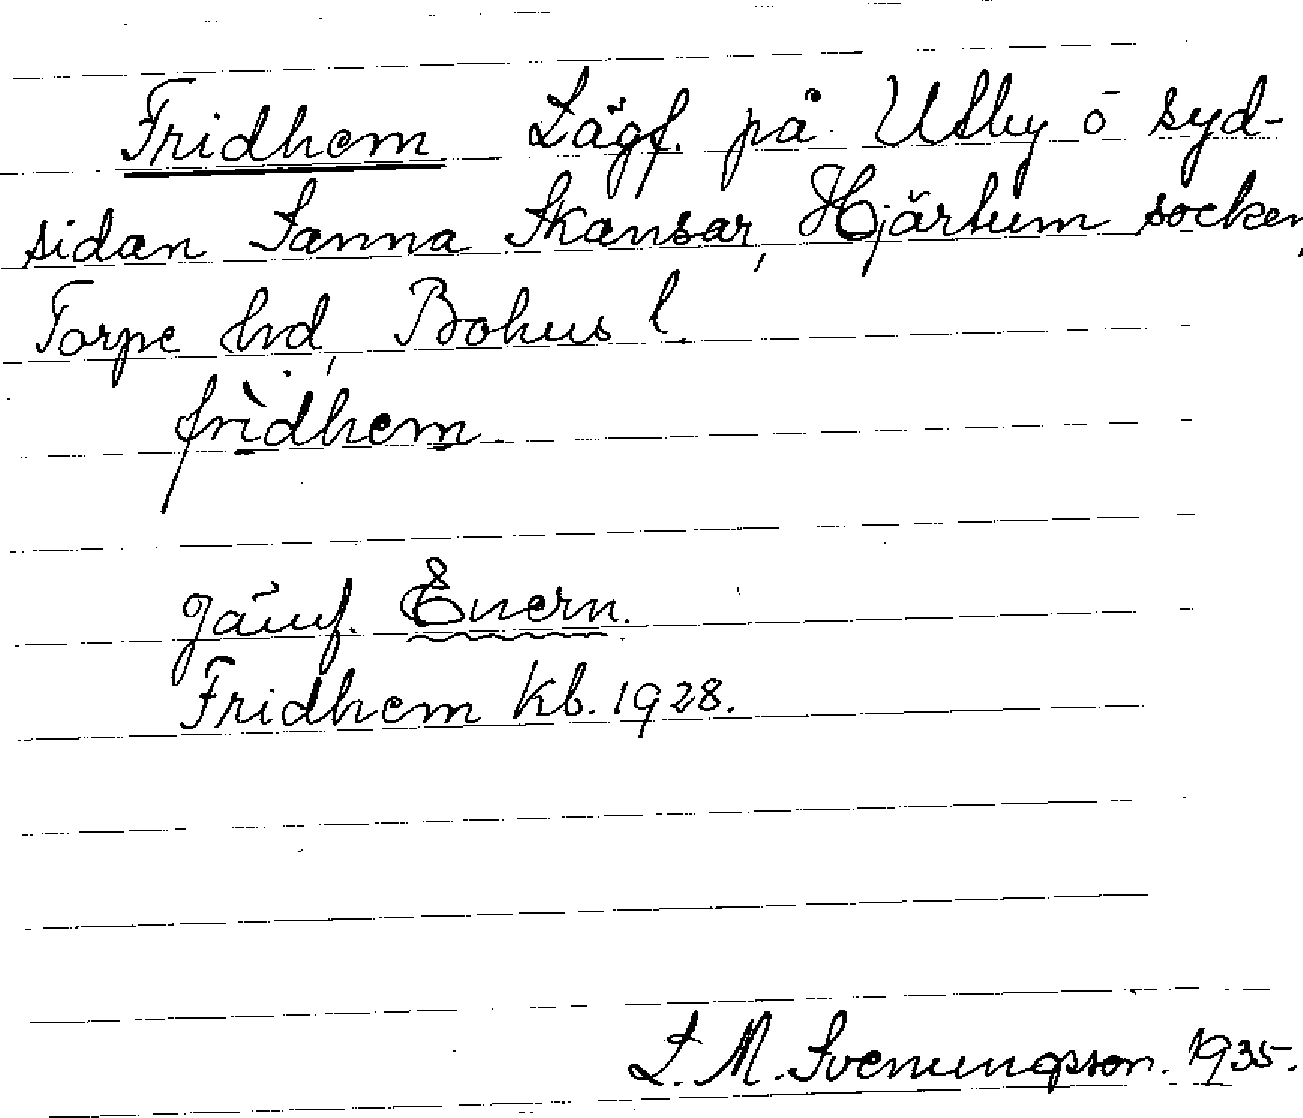 Fridhem Lägf. på Utby ö syd-
sidan Sanna Skansar, Hjärtum socken,
Torpe hd, Bohus l.
frìdhem.
jämf. Enern.
Fridhem Kb. 1928.
L. M. Svenungsson. 1935.